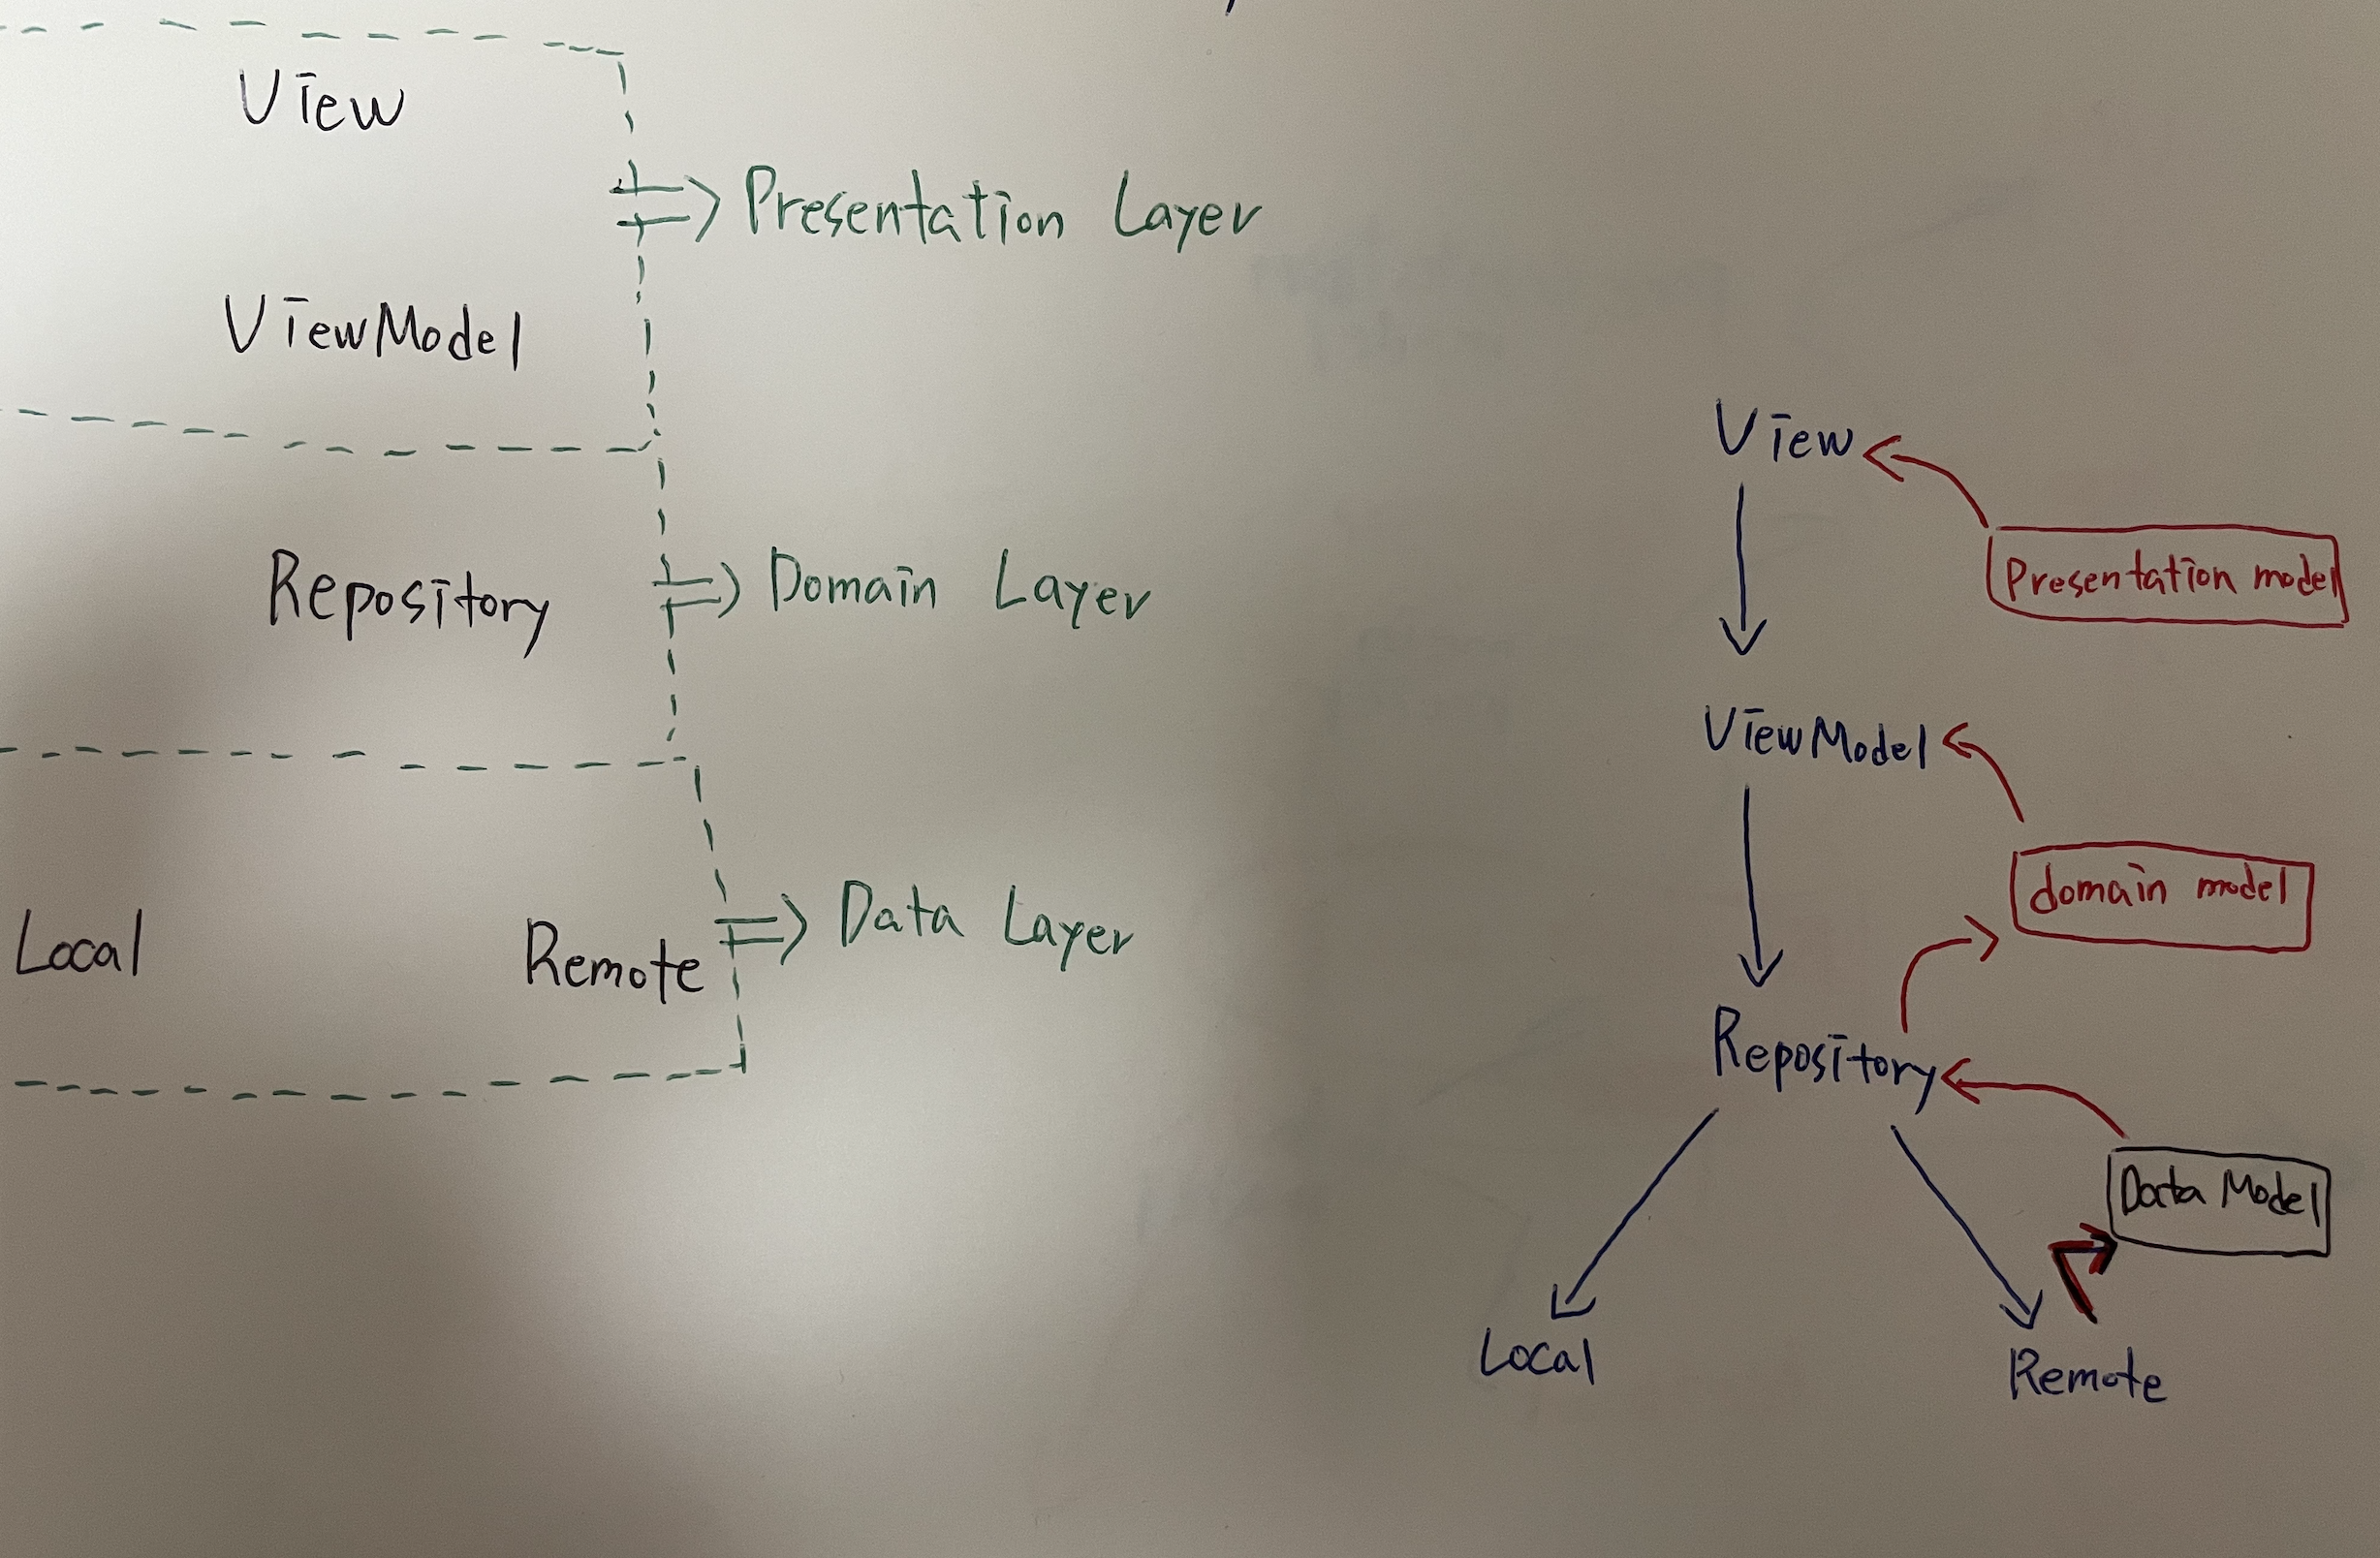 View
Presentation Layer
ViewModel
Repository
Domain Layer
Local
Remote
Data Layer
View
Presentation model
ViewModel
domain model
Repository
Data Model
Local
Remote